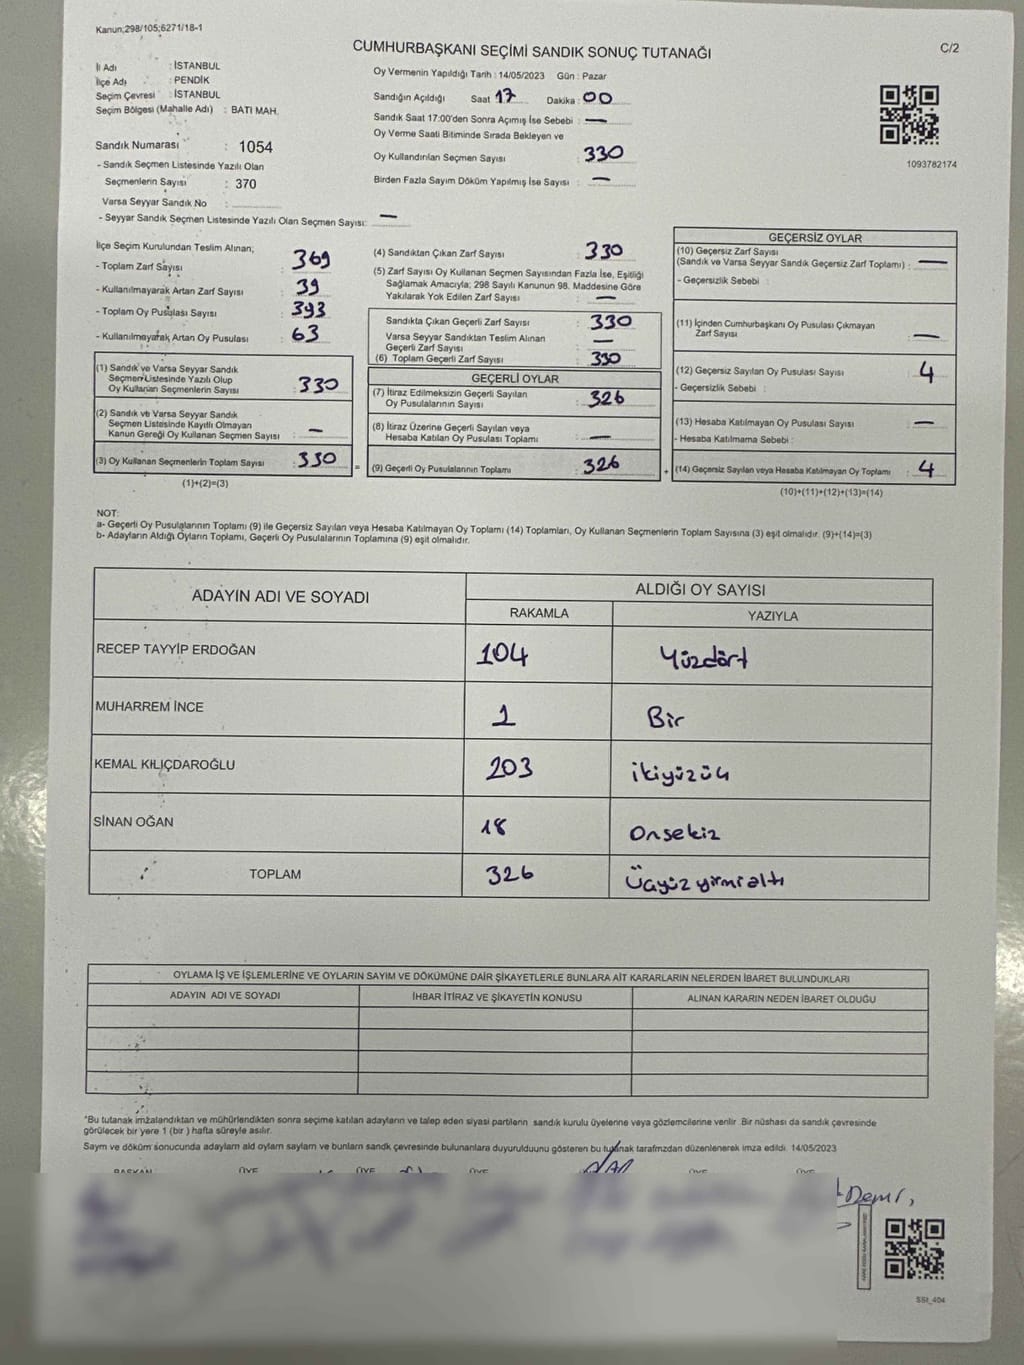 Kanun;298/105;6271/18-1
CUMHURBAŞKANI SEÇİMİ SANDIK SONUÇ TUTANAĞI
C/2
İl Adı : İSTANBUL
İlçe Adı : PENDİK
Seçim Çevresi : İSTANBUL
Seçim Bölgesi (Mahalle Adı) : BATI MAH.
Sandık Numarası : 1054
- Sandık Seçmen Listesinde Yazılı Olan
Seçmenlerin Sayısı : 370
Varsa Seyyar Sandık No :
- Seyyar Sandık Seçmen Listesinde Yazılı Olan Seçmen Sayısı: —
Oy Vermenin Yapıldığı Tarih : 14/05/2023 Gün : Pazar
Sandığın Açıldığı Saat 17 Dakika : 00
Sandık Saat 17:00'den Sonra Açımış İse Sebebi : —
Oy Verme Saati Bitiminde Sırada Bekleyen ve
Oy Kullandırılan Seçmen Sayısı : 330
Birden Fazla Sayım Döküm Yapılmış İse Sayısı : —
1093782174
İlçe Seçim Kurulundan Teslim Alınan;
- Toplam Zarf Sayısı : 369
- Kullanılmayarak Artan Zarf Sayısı : 39
- Toplam Oy Pusulası Sayısı : 393
- Kullanılmayarak Artan Oy Pusulası : 63
(1) Sandık ve Varsa Seyyar Sandık
Seçmen Listesinde Yazılı Olup
Oy Kullanan Seçmenlerin Sayısı : 330
(2) Sandık ve Varsa Seyyar Sandık
Seçmen Listesinde Kayıtlı Olmayan
Kanun Gereği Oy Kullanan Seçmen Sayısı : —
(3) Oy Kullanan Seçmenlerin Toplam Sayısı : 330
(1)+(2)=(3)
(4) Sandıktan Çıkan Zarf Sayısı : 330
(5) Zarf Sayısı Oy Kullanan Seçmen Sayısından Fazla İse, Eşitliği
Sağlamak Amacıyla; 298 Sayılı Kanunun 98. Maddesine Göre
Yakılarak Yok Edilen Zarf Sayısı : —
Sandıkta Çıkan Geçerli Zarf Sayısı : 330
Varsa Seyyar Sandıktan Teslim Alınan
Geçerli Zarf Sayısı : —
(6) Toplam Geçerli Zarf Sayısı : 330
GEÇERLİ OYLAR
(7) İtiraz Edilmeksizin Geçerli Sayılan
Oy Pusulalarının Sayısı : 326
(8) İtiraz Üzerine Geçerli Sayılan veya
Hesaba Katılan Oy Pusulası Toplamı : —
= (9) Geçerli Oy Pusulalarının Toplamı : 326 +
GEÇERSİZ OYLAR
(10) Geçersiz Zarf Sayısı
(Sandık ve Varsa Seyyar Sandık Geçersiz Zarf Toplamı) : —
- Geçersizlik Sebebi :
(11) İçinden Cumhurbaşkanı Oy Pusulası Çıkmayan
Zarf Sayısı : —
(12) Geçersiz Sayılan Oy Pusulası Sayısı : 4
- Geçersizlik Sebebi :
(13) Hesaba Katılmayan Oy Pusulası Sayısı : —
- Hesaba Katılmama Sebebi :
(14) Geçersiz Sayılan veya Hesaba Katılmayan Oy Toplamı : 4
(10)+(11)+(12)+(13)=(14)
NOT:
a- Geçerli Oy Pusulalarının Toplamı (9) ile Geçersiz Sayılan veya Hesaba Katılmayan Oy Toplamı (14) Toplamları, Oy Kullanan Seçmenlerin Toplam Sayısına (3) eşit olmalıdır. (9)+(14)=(3)
b- Adayların Aldığı Oyların Toplamı, Geçerli Oy Pusulalarının Toplamına (9) eşit olmalıdır.
ADAYIN ADI VE SOYADI
ALDIĞI OY SAYISI
RAKAMLA YAZIYLA
RECEP TAYYİP ERDOĞAN 104 Yüzdört
MUHARREM İNCE 1 Bir
KEMAL KILIÇDAROĞLU 203 ikiyüzüç
SİNAN OĞAN 18 onsekiz
TOPLAM 326 Üçyüz yirmi altı
OYLAMA İŞ VE İŞLEMLERİNE VE OYLARIN SAYIM VE DÖKÜMÜNE DAİR ŞİKAYETLERLE BUNLARA AİT KARARLARIN NELERDEN İBARET BULUNDUKLARI
ADAYIN ADI VE SOYADI İHBAR İTİRAZ VE ŞİKAYETİN KONUSU ALINAN KARARIN NEDEN İBARET OLDUĞU
*Bu tutanak imzalandıktan ve mühürlendikten sonra seçime katılan adayların ve talep eden siyasi partilerin sandık kurulu üyelerine veya gözlemcilerine verilir. Bir nüshası da sandık çevresinde
görülecek bir yere 1 (bir ) hafta süreyle asılır.
Sayım ve döküm sonucunda adayların ald oyların sayların ve bunların sandk çevresinde bulunanlara duyurulduunu gösteren bu tutanak tarafmzdan düzenlenerek imza edildi. 14/05/2023
BAŞKAN ÜYE ÜYE ÜYE ÜYE ÜYE
Demir
SSt_404